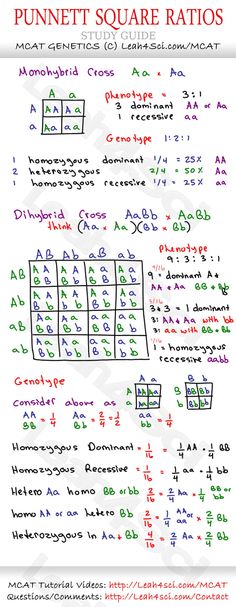 PUNNETT SQUARE RATIOS
STUDY GUIDE
MCAT GENETICS (C) Leah4Sci.com/MCAT
Monohybrid Cross Aa x Aa
A a
A AA Aa
a Aa aa
phenotype = 3:1
3 dominant AA or Aa
1 recessive aa
Genotype 1:2:1
1 homozygous dominant 1/4 = 25% AA
2 heterozygous 2/4 = 50% Aa
1 homozygous recessive 1/4 = 25% aa
Dihybrid Cross AaBb x AaBb
think (Aa x Aa)(Bb x Bb)
AB Ab aB ab
AB
Ab
aB
ab
Phenotype
9:3:3:1
9/16
9 = dominant A+B
3+3 = 1 dominant
3: AA or Aa with bb
3: aa with BB or Bb
1/16
1 = homozygous
recessive aabb
Genotype
Consider above as
A a
A AA Aa
a Aa aa
B b
B BB Bb
b Bb bb
AA BB = 1/4
Aa Bb = 2/4 = 1/2
aa bb = 1/4
Homozygous Dominant = 1/16 = 1/4 AA · 1/4 BB
Homozygous Recessive = 1/16 = 1/4 aa · 1/4 bb
Hetero Aa homo BB or bb = 2/16 = 2/4 Aa · 1/4 BB or bb
homo AA or aa hetero Bb = 2/16 = 1/4 AA or aa · 2/4 Bb
Heterozygous in Aa + Bb = 4/16 = 2/4 Aa · 2/4 Bb
MCAT Tutorial Videos: http://Leah4sci.com/MCAT
Questions/Comments: http://Leah4sci.com/Contact